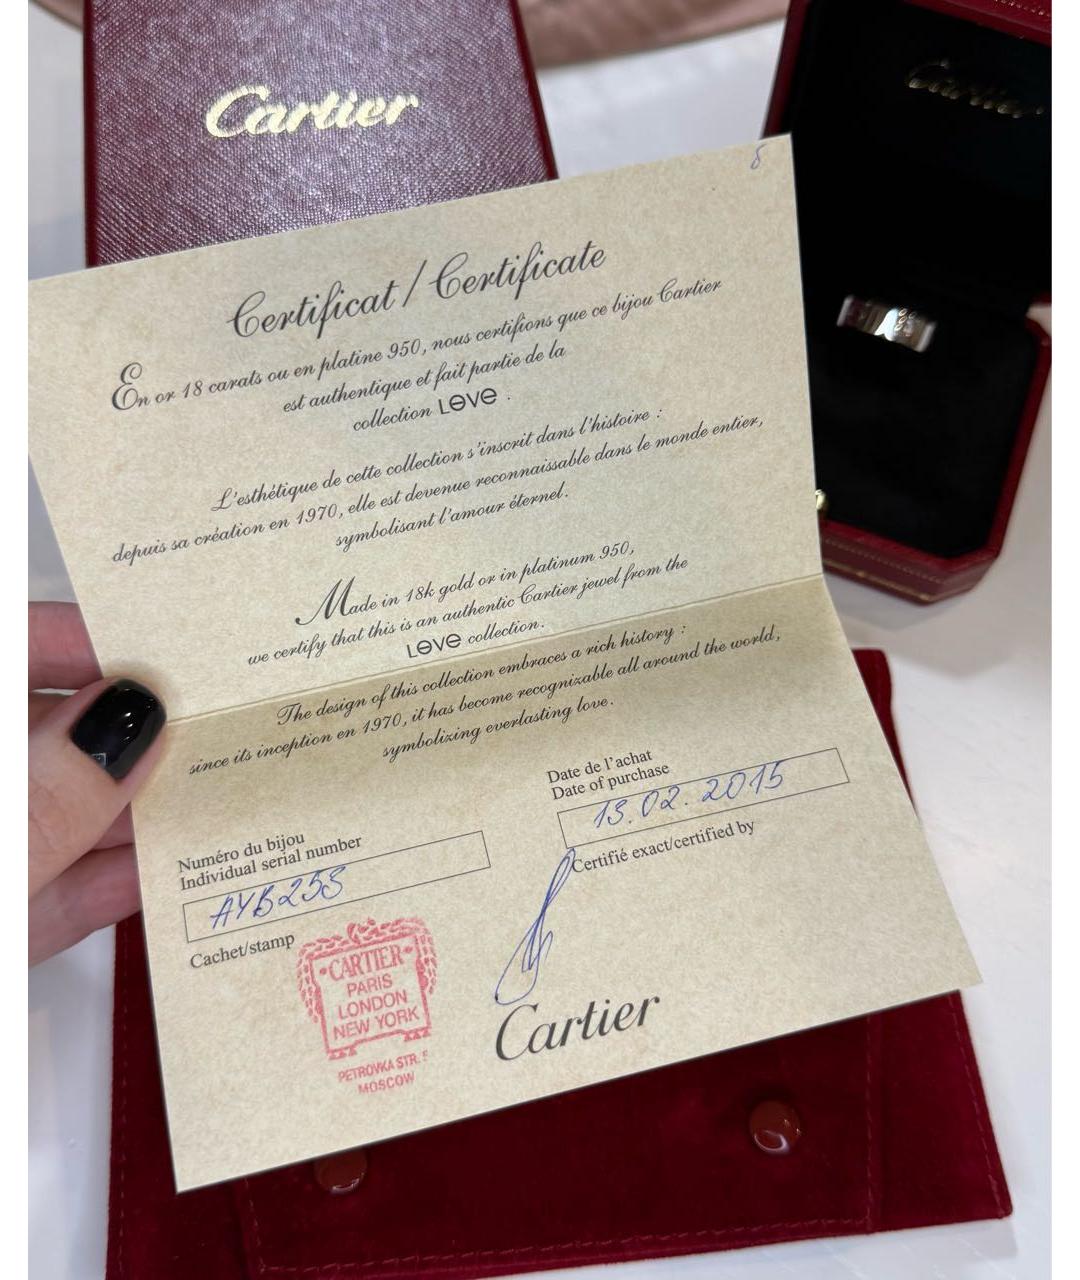 Cartier
Cartier
8
Certificat / Certificate
En or 18 carats ou en platine 950, nous certifions que ce bijou Cartier
est authentique et fait partie de la
collection LOVE .
L'esthétique de cette collection s'inscrit dans l'histoire :
depuis sa création en 1970, elle est devenue reconnaissable dans le monde entier,
symbolisant l'amour éternel.
Made in 18k gold or in platinum 950,
we certify that this is an authentic Cartier jewel from the
LOVE collection.
The design of this collection embraces a rich history :
since its inception en 1970, it has become recognizable all around the world,
symbolizing everlasting love.
Date de l'achat
Date of purchase
13.02.2015
Numéro du bijou
Individual serial number
Certifié exact/certified by
Cachet/stamp
CARTIER
PARIS
LONDON
NEW YORK
PETROVKA STR.
MOSCOW
Cartier